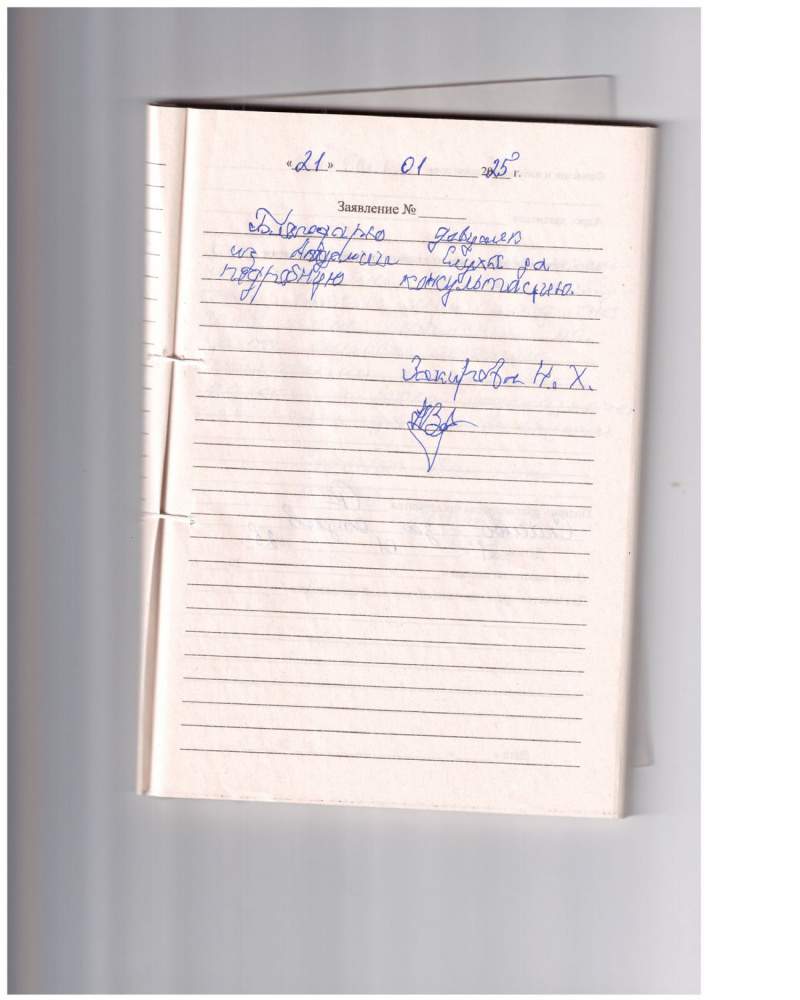 «21» 01 2025 г.
Заявление №
Благодарю девушек
из Академии Слуха за
подробную консультацию.
Закирова Н. Х.